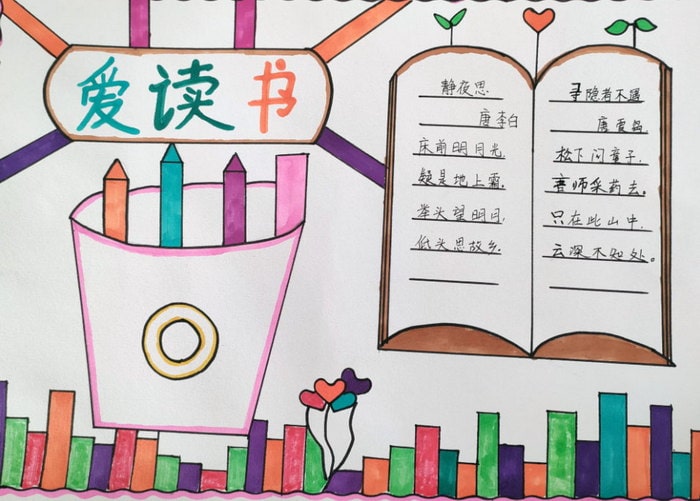 爱读书
静夜思
唐李白
床前明月光
疑是地上霜.
举头望明月.
低头思故乡.
寻隐者不遇
唐贾岛
松下问童子.
言师采药去。
只在此山中.
云深不知处。